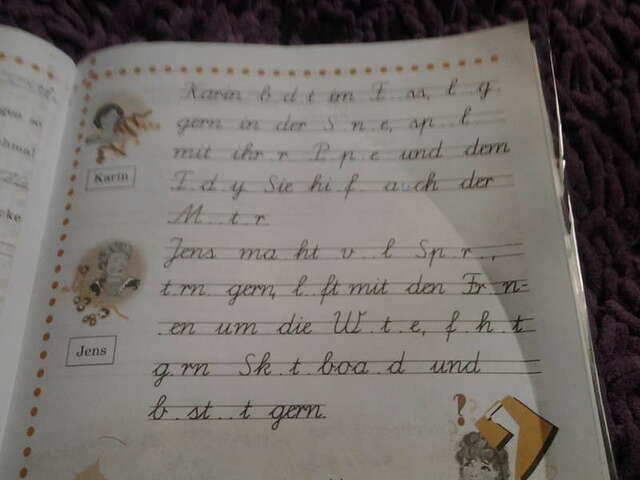 Karin b.d.t im F..ss, l.g.
gern in der S.n.e, sp..l.
mit ihr.r P.p.e und dem
T.d.y Sie hi.f. auch der
Karin
M..t.r.
Jens ma.ht v..l Sp.r..,
t.rn. gern, l..ft mit den Fr..n-
Jens
.en um die W.t.e, f.h.t
g.rn Sk.t.boa.d und
b.st..t gern.
?